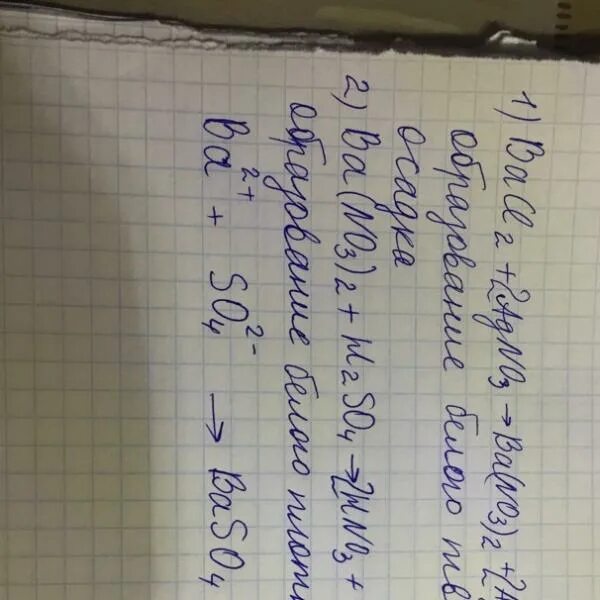 1) BaCl2 + 2AgNO3 → Ba(NO3)2 + 2
образование белого тв
осадка
2) Ba(NO3)2 + H2SO4 → 2HNO3 +
образование белого плотн
Ba²⁺ + SO4²⁻ → BaSO4